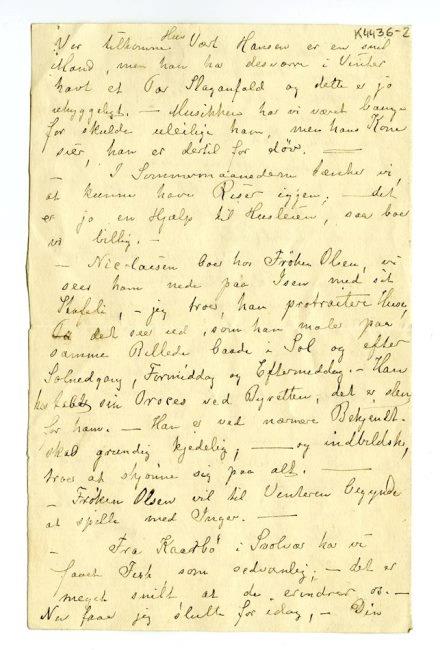 K4436-2
Huus
Vor tilkomne Vært Hansen er en snil
Mand, men han har desværre i Vinter
havt et Par Slaganfald og dette er jo
uhyggeligt. — Musikken har vi været bange
for skulde uleilige ham, men hans Kone
siér, han er dertil for døv. —
— I Sommermaanederne tænker vi,
at kunne have Riser igjen, — det
er jo en Hjælp til Husleien, saa boe
vi billig. —
— Nicolaisen boer hos Frøken Olsen, vi
seer ham nede paa Isen med sit
Staffeli, — jeg tror, han protraiterer Huse
det seer ud, som han maler paa
samme Billede baade i Sol og efter
Solnedgang, Formiddag og Eftermiddag. — Han
har tabt sin Proces ved Byretten, det er slemt
for ham. — Han er ved nærmere Bekjendt-
skab grundig kjedelig, — og indbildsk,
troer at skjønne sig paa alt. —
— Frøken Olsen vil til Vinteren begynde
at spille med Inger. —
— Fra Kaarbø i Svolvær har vi
faaet Fisk som sedvanlig, — det er
meget snilt at de erindrer os. —
Nu faar jeg slutte for idag, — Din